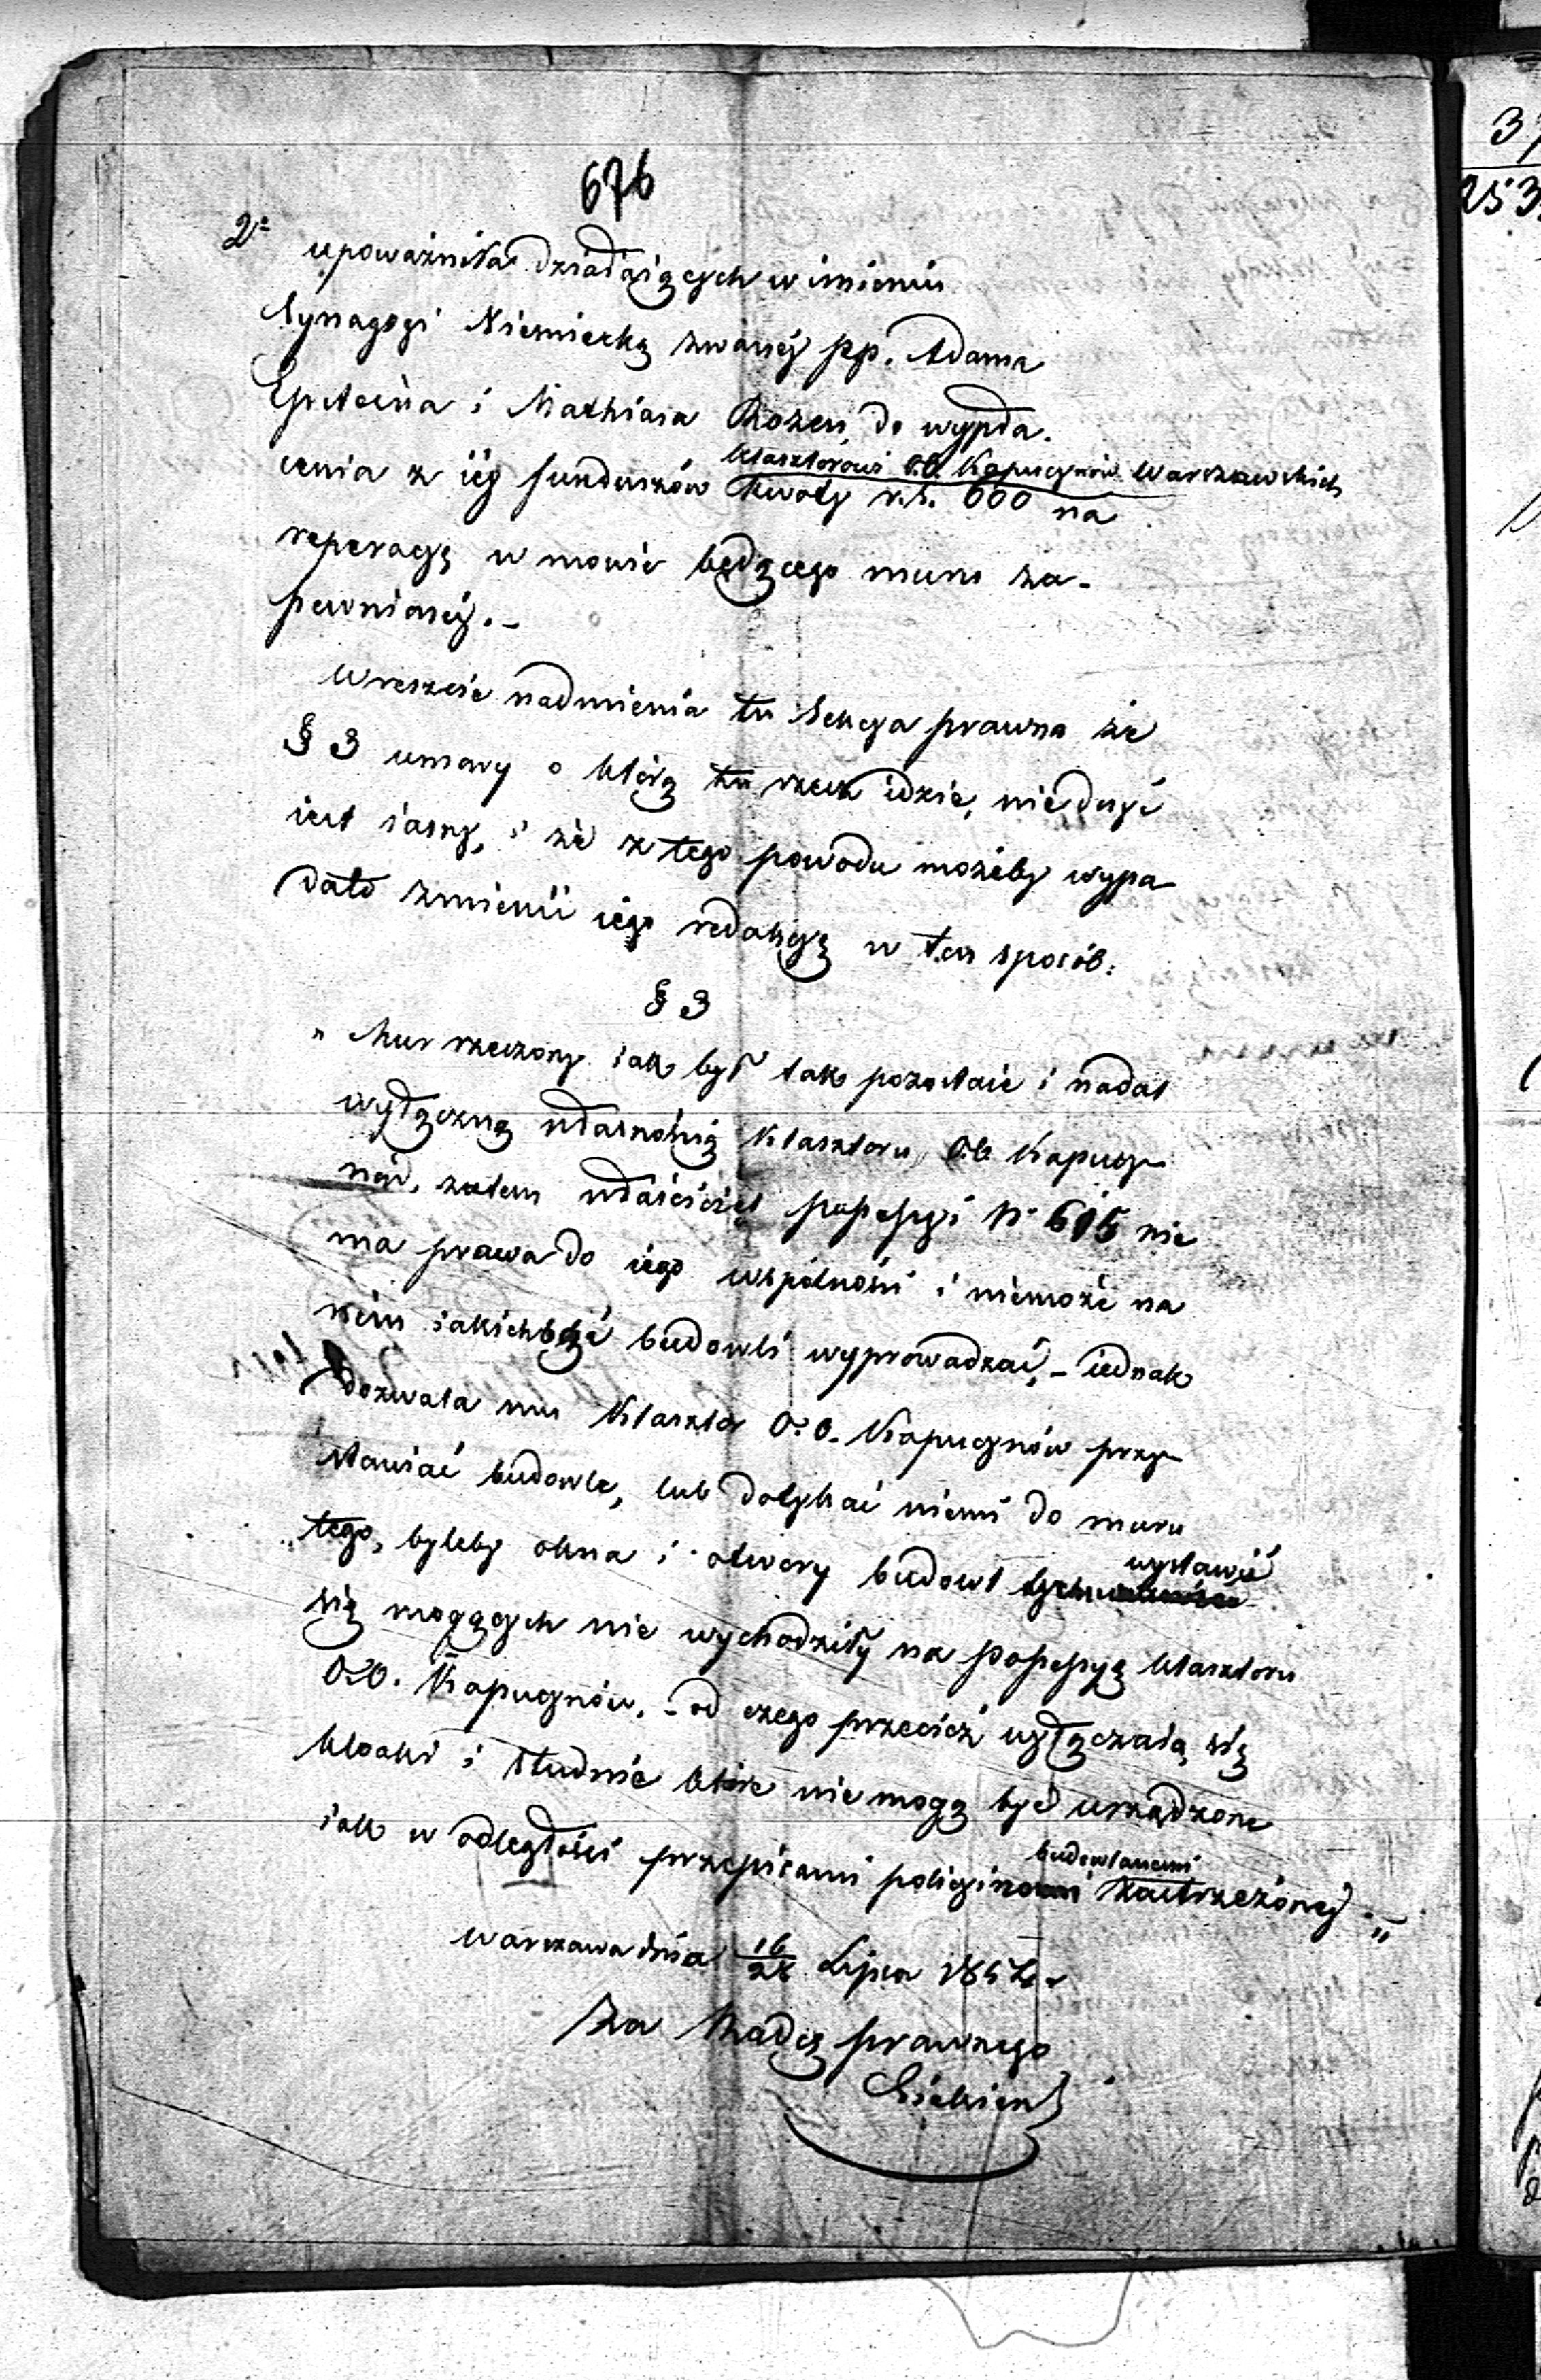 676
2º upoważniła działaiących w imieniu
Synagogi Niemiecką zwanéj pp. Adama
Epsteina i Mathiasa Rozen, do wypła-
cenia z iéj funduszów Klasztorowi O.O. Kapucynów Warszawskich kwoty r.s. 600 na
reperacyę w mowie będącego muru za-
pewnionéj.-
Wreszcie nadmienia tu Sekcya prawna że
§ 3 umowy o którą tu rzecz idzie, nie dosyć
iest iasny, i że z tego powodu możeby wypa-
dało zmienić iego redakcyą w ten sposób:
§ 3
„Mur rzeczony iak był tak pozostaie i nadal
wyłączną własnością Klasztoru OO Kapucy-
nów, zatem właściciel possessyi N 615 nie
ma prawa do iego wspólności i niemoże na
nim iakichbądź budowli wyprowadzać, - iednak
dozwala mu Klasztor O.O. Kapucynów przy-
stawiać budowle, lub dotykać niemi do muru
tego, byleby okna i otwory budowl wystawić
się mogących nie wychodziły na possessyą Klasztoru
O.O. Kapucynów, - od czego przecież wyłączaią się
kloaki i studnie które nie mogą być urządzone
iak w odległości przepisami policyino budowlanemi zastrzeżonéj."
Warszawa dnia 16/28 Lipca 185
Za Radcę prawnego